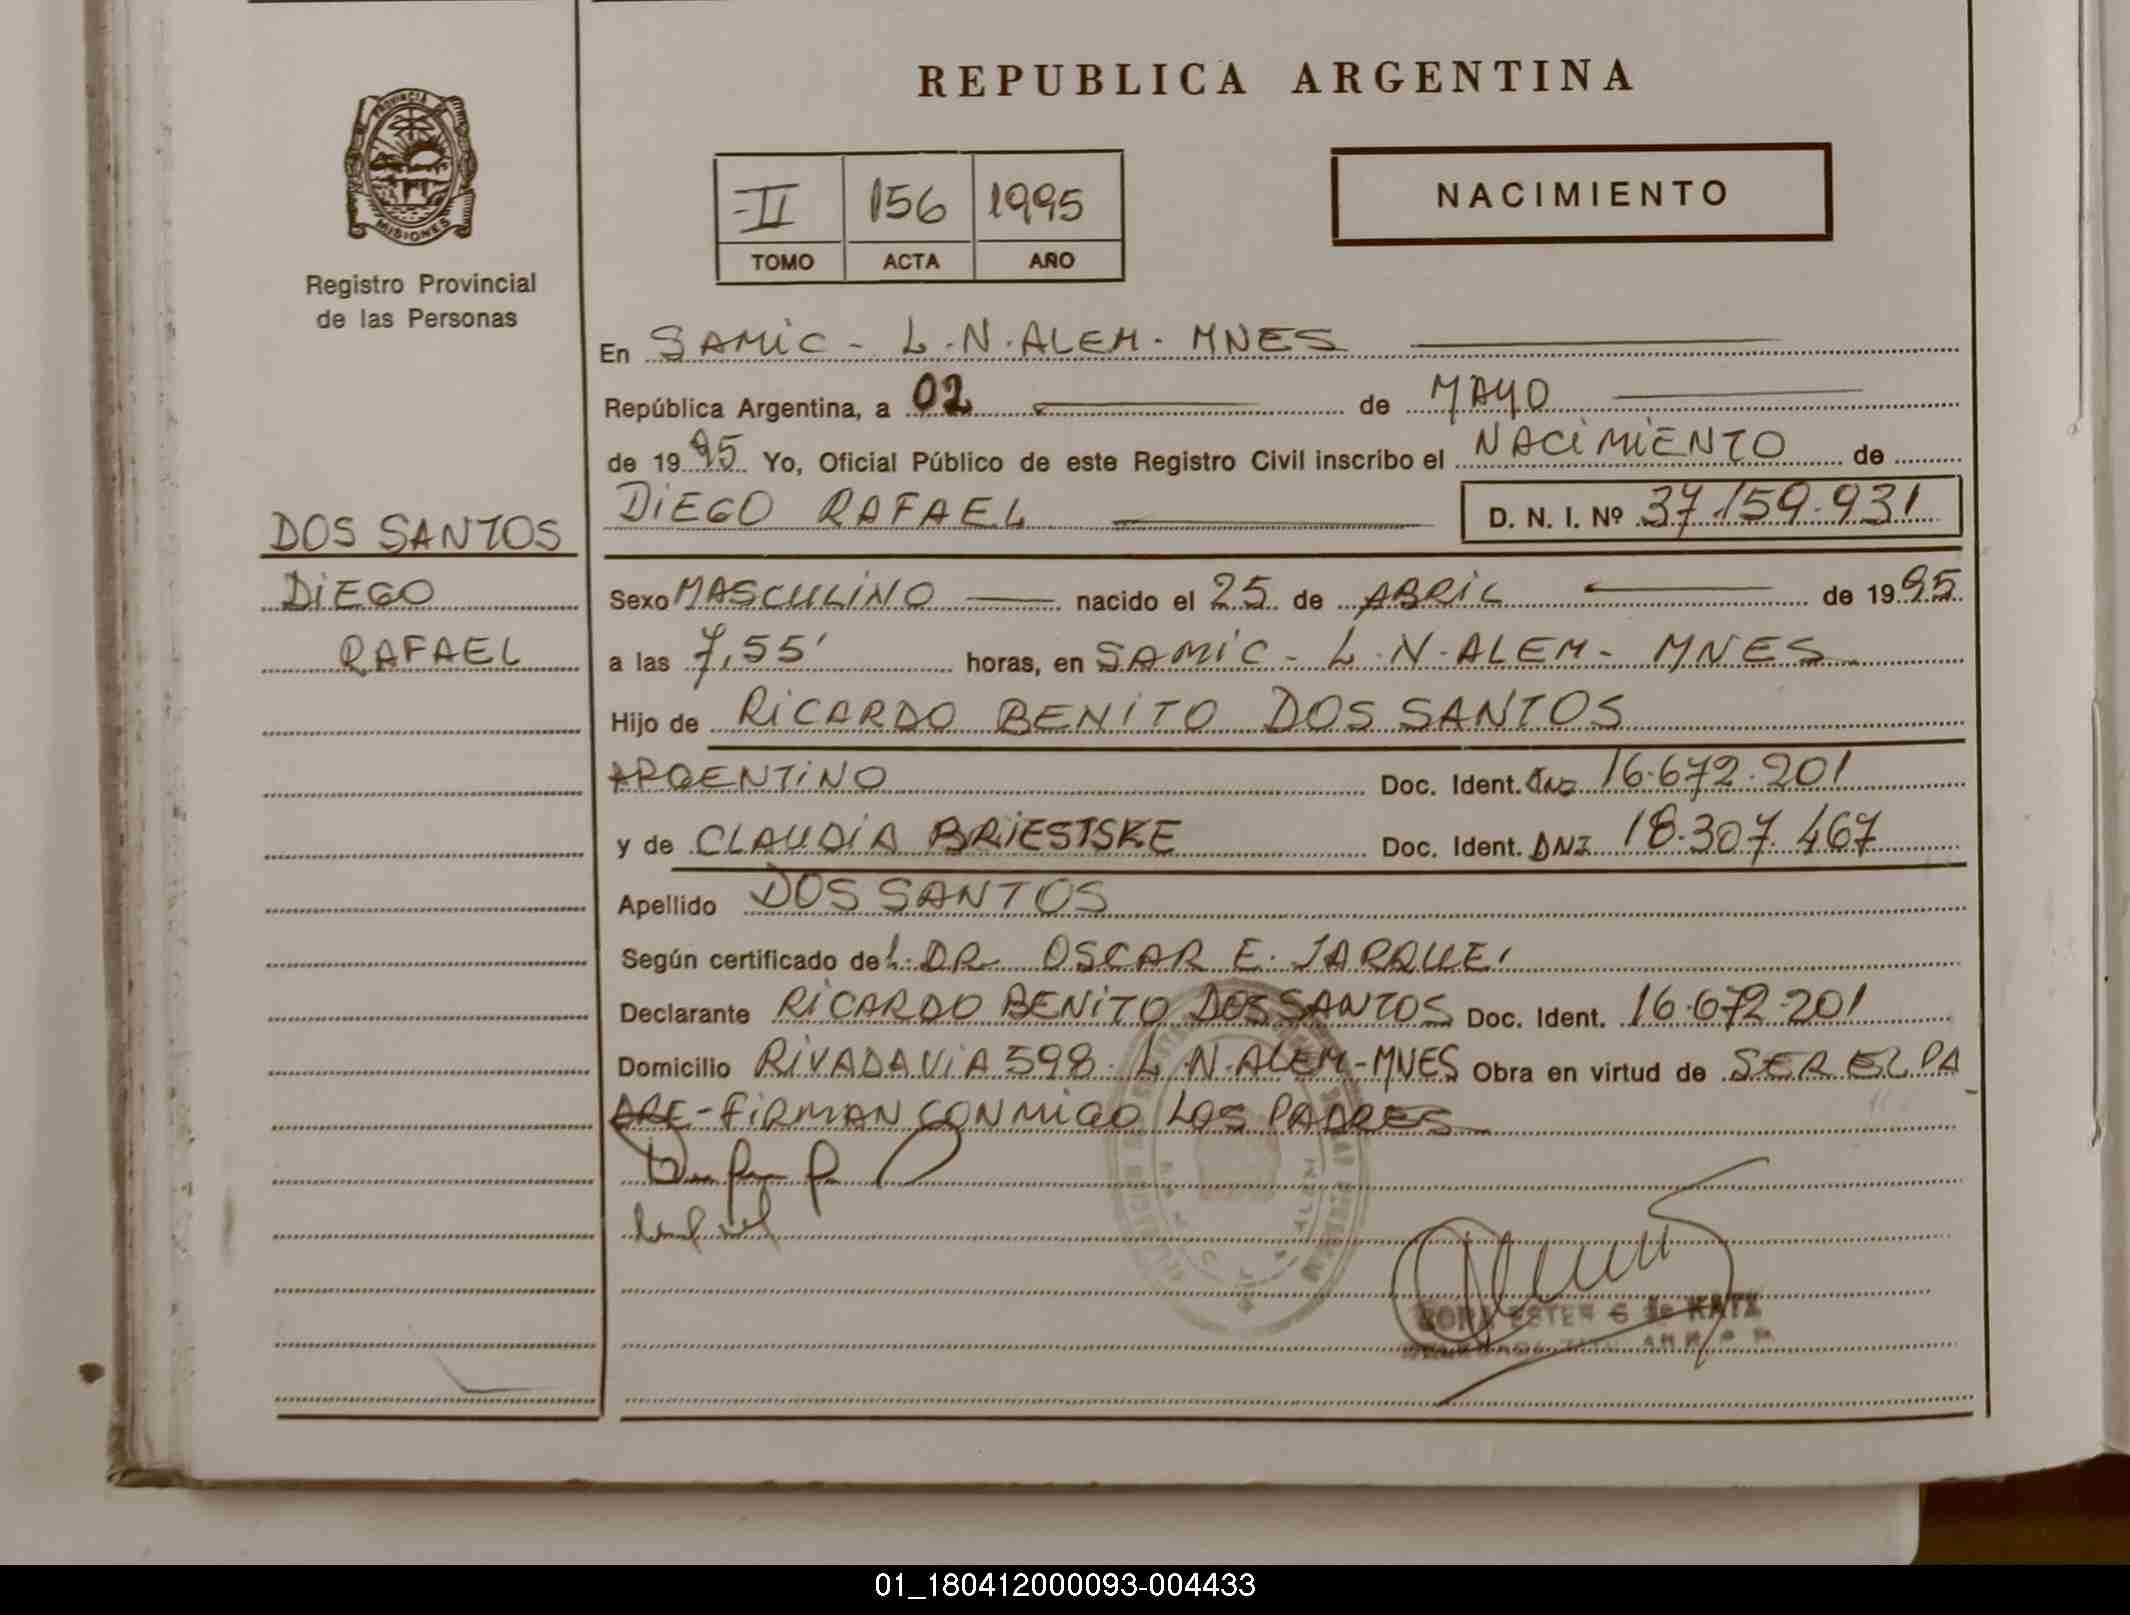 REPUBLICA ARGENTINA
PROVINCIA DE
MISIONES
Registro Provincial
de las Personas
II 156 1995
TOMO ACTA AÑO
NACIMIENTO
En SAMIC - L.N. ALEM - MNES
República Argentina, a 02 de MAYO
de 1995 Yo, Oficial Público de este Registro Civil inscribo el NACIMIENTO de
DIEGO RAFAEL D. N. I. Nº 37.159.931
DOS SANTOS
DIEGO
RAFAEL
Sexo MASCULINO nacido el 25 de ABRIL de 1995
a las 7,55' horas, en SAMIC - L.N. ALEM - MNES
Hijo de RICARDO BENITO DOS SANTOS
ARGENTINO Doc. Ident. DNI 16.672.201
y de CLAUDIA BRIESTSKE Doc. Ident. DNI 18.307.467
Apellido DOS SANTOS
Según certificado del DR. OSCAR E.
Declarante RICARDO BENITO DOS SANTOS Doc. Ident. 16.672.201
Domicilio RIVADAVIA 598 - L.N. ALEM - MNES Obra en virtud de SER EL PA
DRE - FIRMAN CONMIGO LOS PADRES
ESTER G de KATZ
01_180412000093-004433